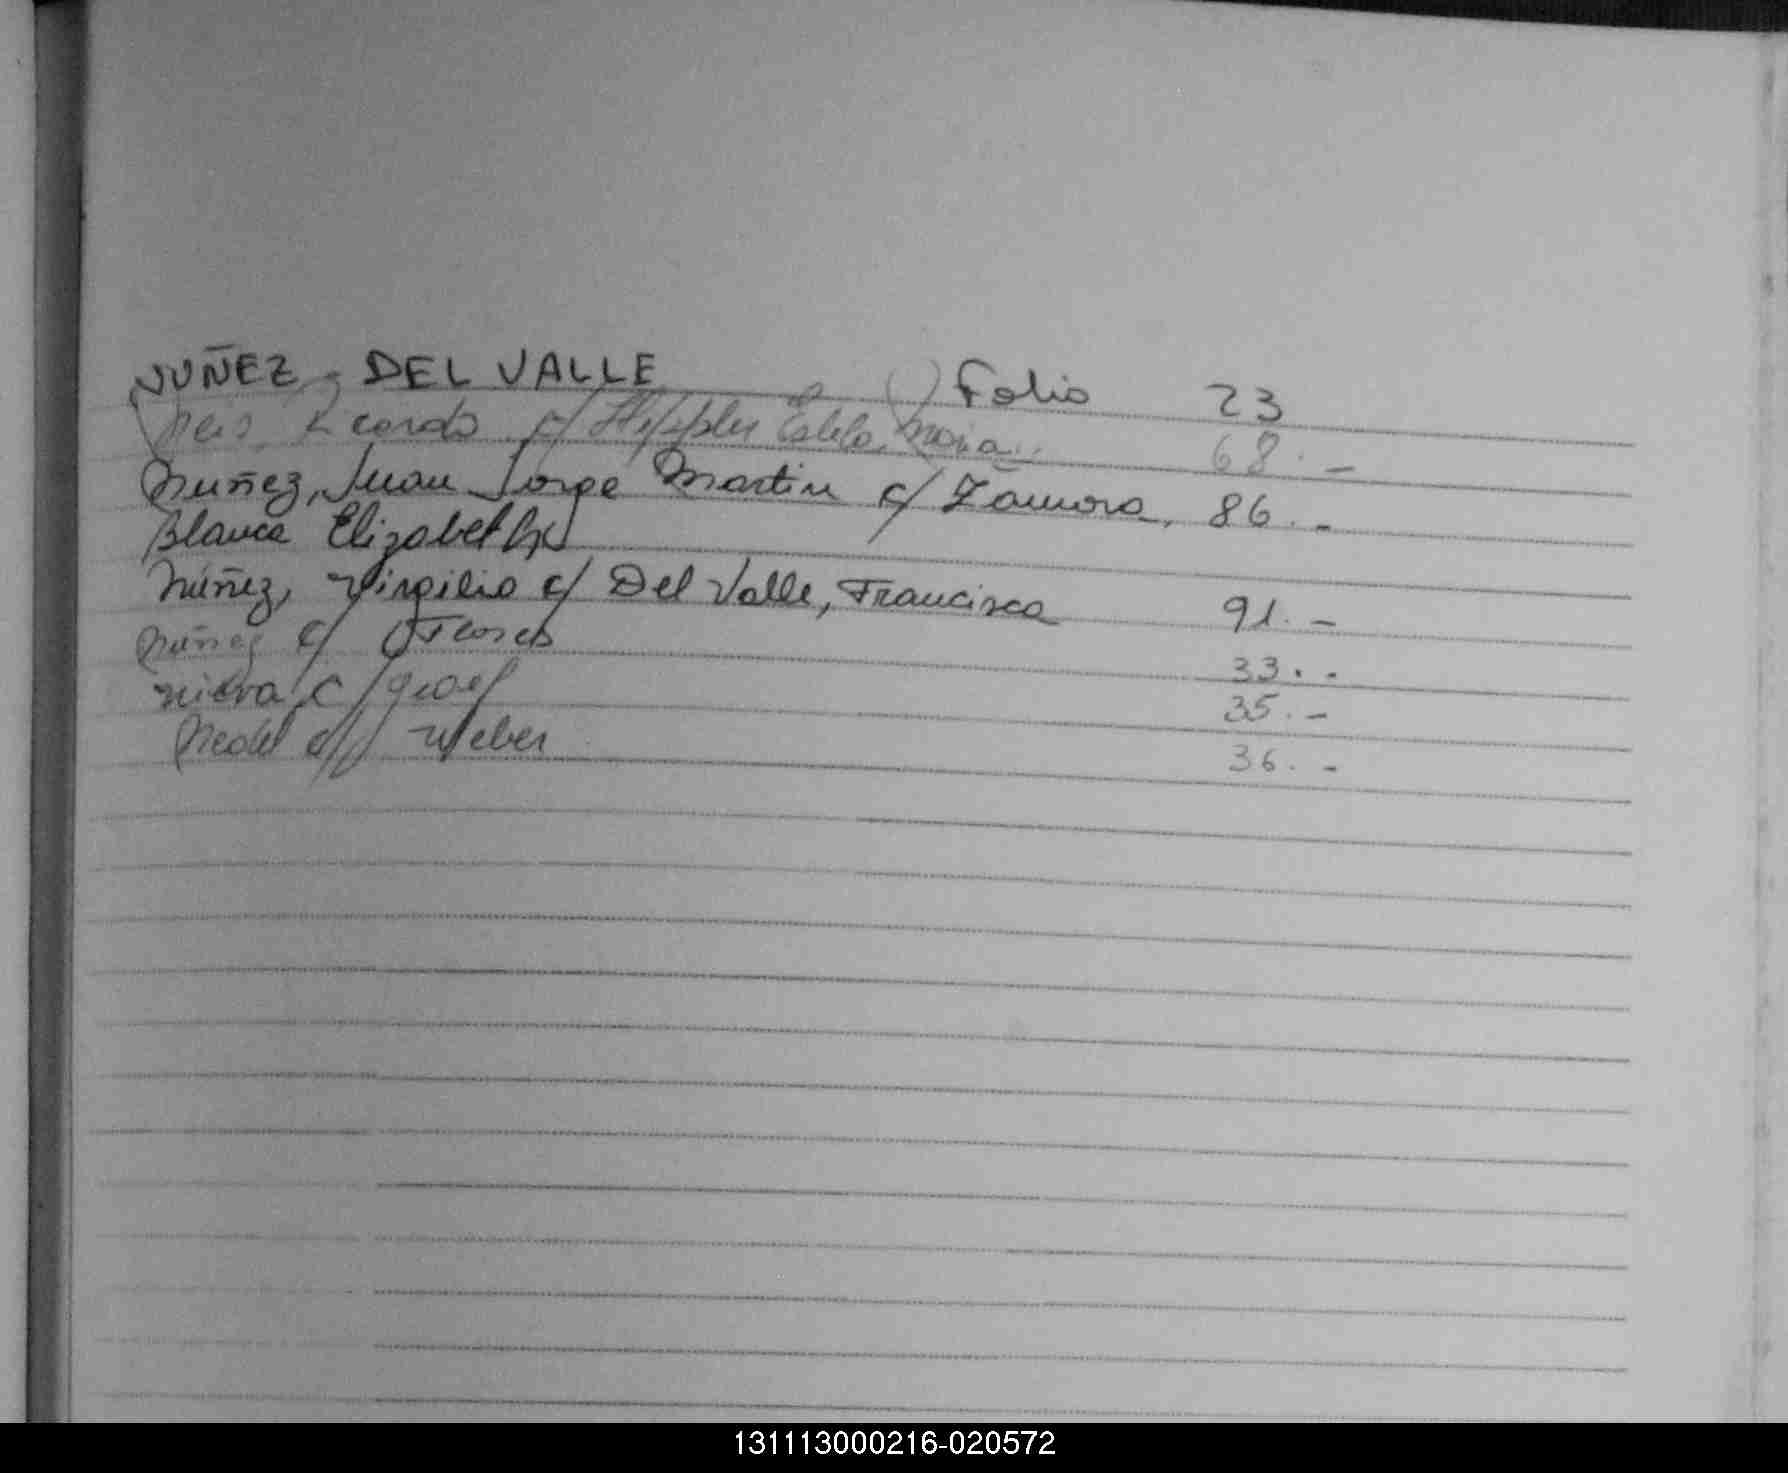 NUÑEZ - DEL VALLE Folio 23
Ricardo c/ Estela Maria. 68.-
Nuñez, Juan Jorge Martin c/ Zamora, 86.-
Blanca Elizabeth
Núñez, Virgilio c/ Del Valle, Francisca 91.-
Nuñez c/ Flores 33.-
c/ 35.-
c/ Weber 36.-
131113000216-020572